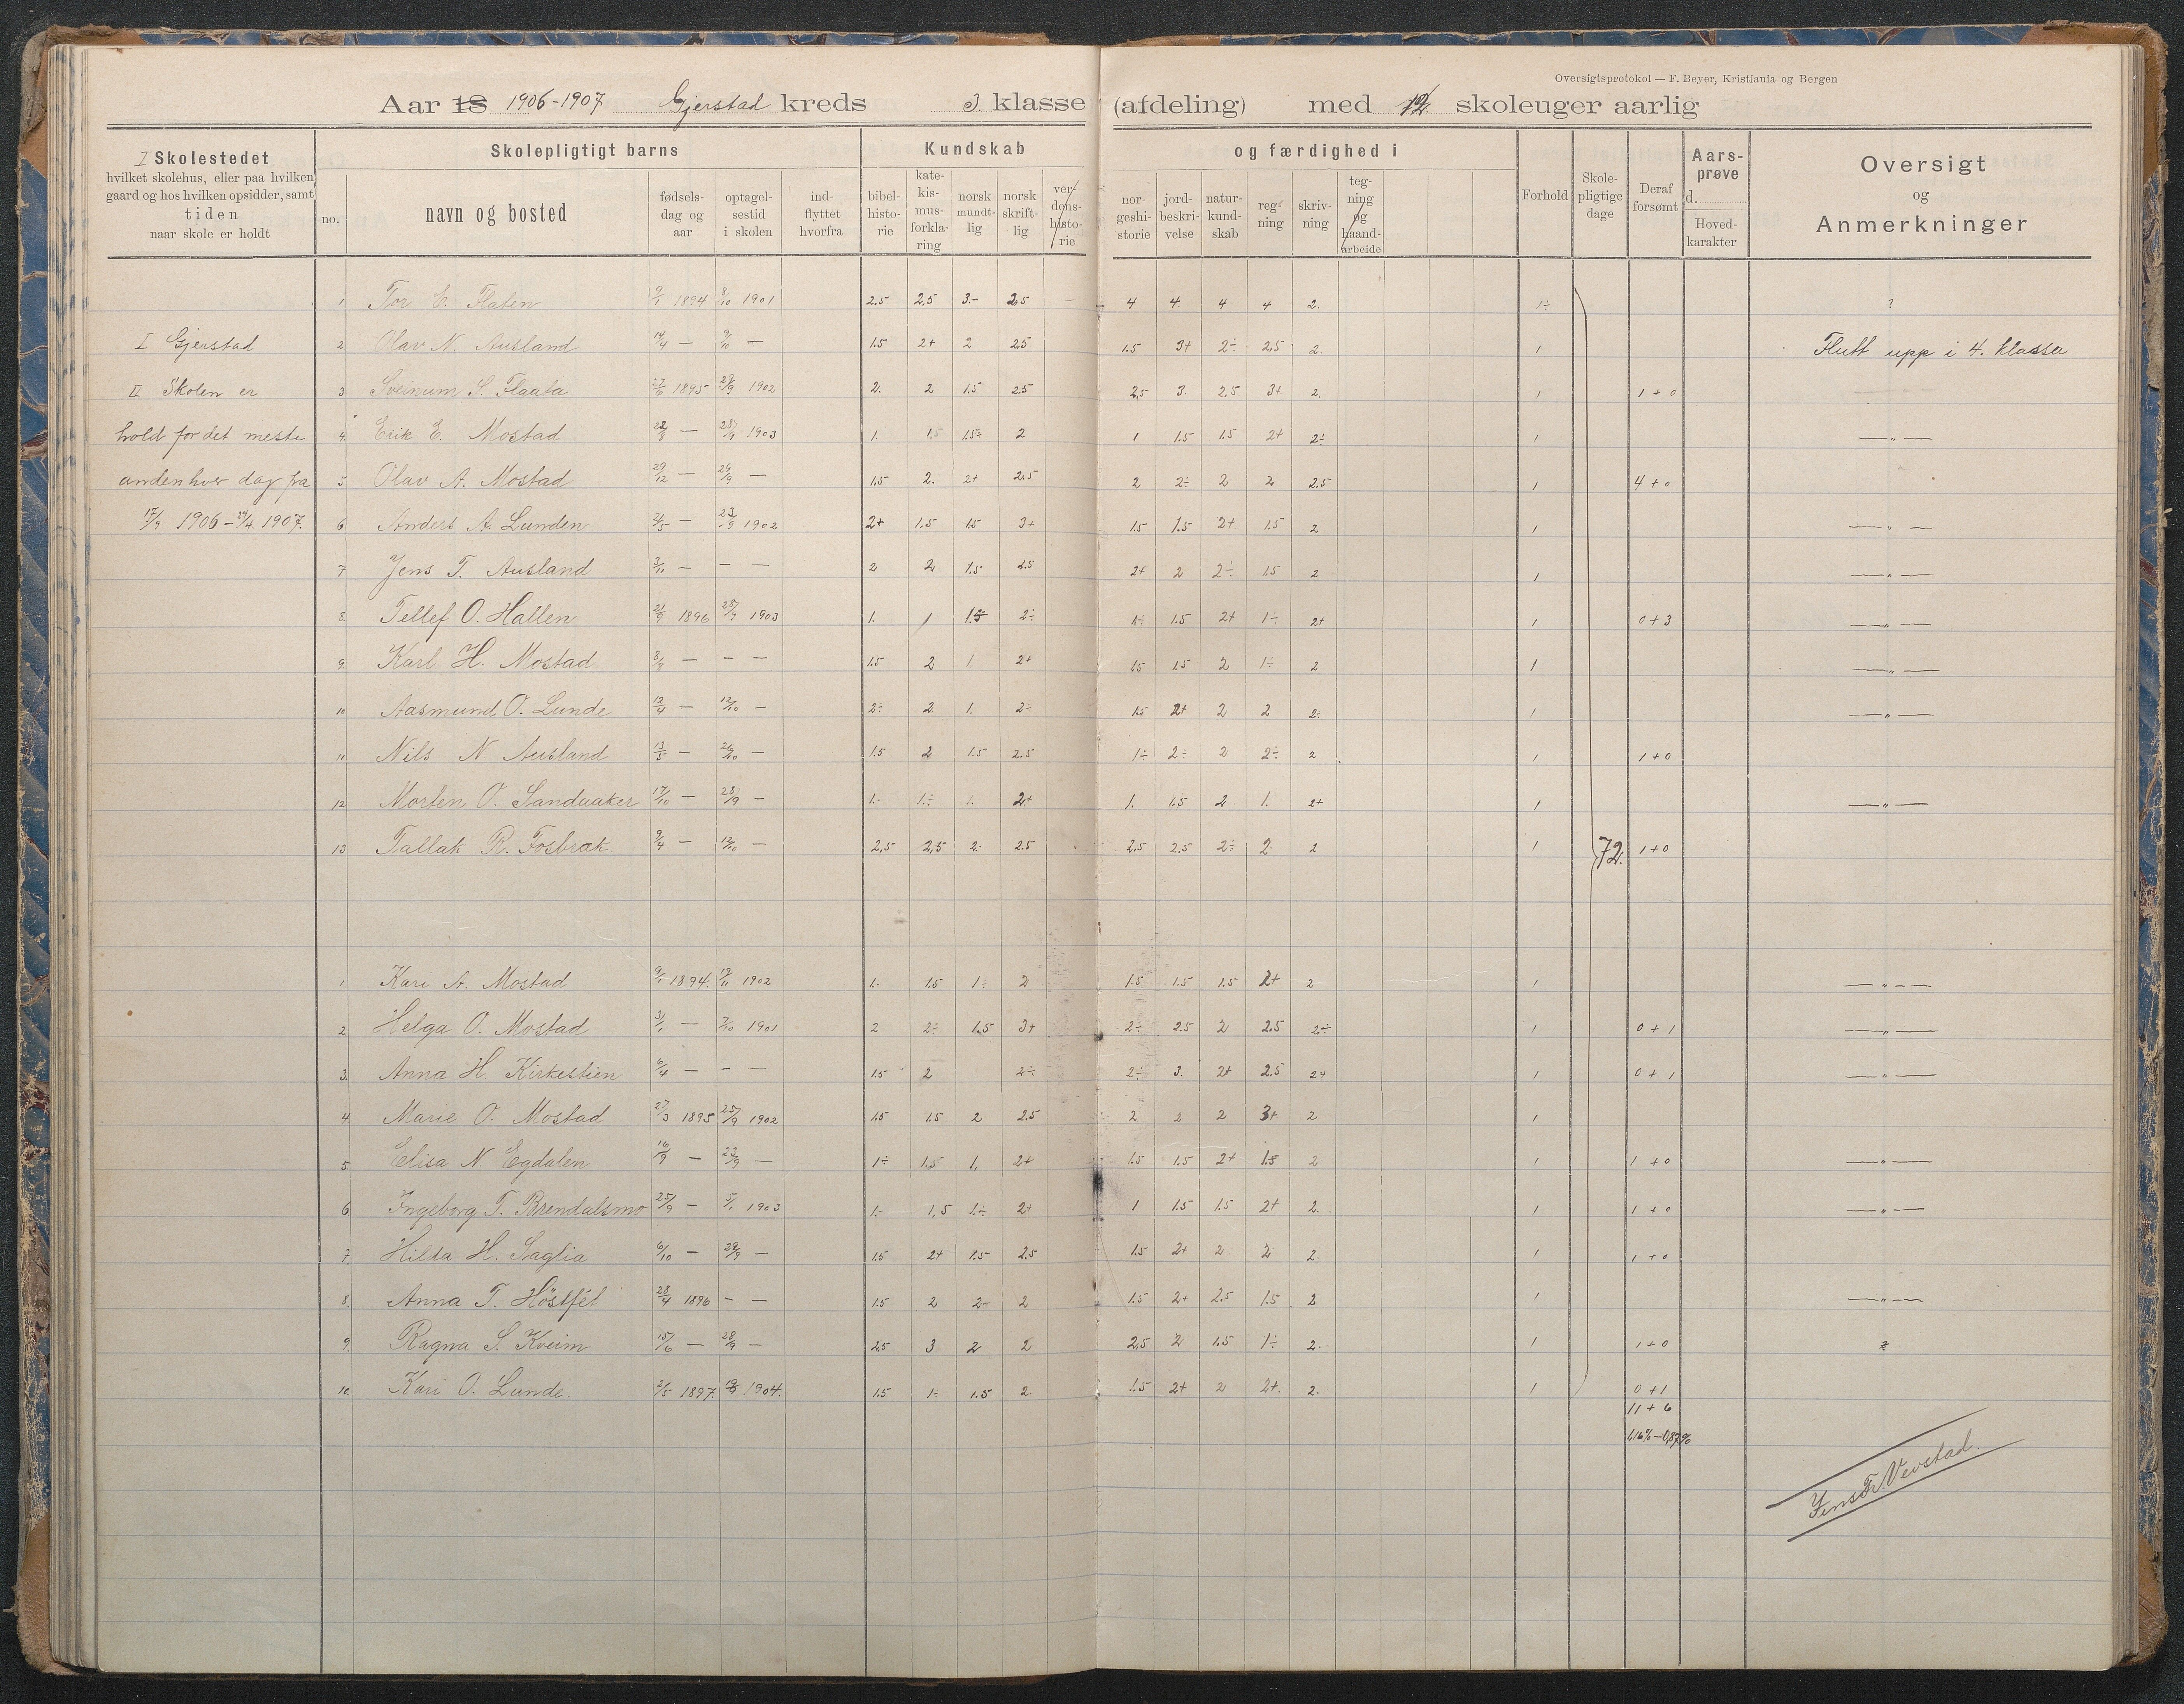 Oversigtsprotokol — F. Beyer, Kristiania og Bergen
Aar 18 1906-1907 Gjerstad kreds 3. klasse (afdeling) med 12 skoleuger aarlig
I Skolestedet
hvilket skolehus, eller paa hvilken
gaard og hos hvilken opsidder, samt
tiden
naar skole er holdt
Skolepligtigt barns
no.
navn og bosted
fødsels-
dag og
aar
optagel-
sestid
i skolen
ind-
flyttet
hvorfra
Kundskab
bibel-
histo-
rie
kate-
kis-
mus-
forkla-
ring
norsk
mundt-
lig
norsk
skrift-
lig
ver-
dens-
histo-
rie
og færdighed i
nor-
geshi-
storie
jord-
beskri-
velse
natur-
kund-
skab
reg-
ning
skriv-
ning
teg-
ning
og
haand-
arbeide
Forhold
Skole-
pligtige
dage
Deraf
forsømt
Aars-
prøve
d.
Hoved-
karakter
Oversigt
og
Anmerkninger
1 Tor E. Flaten 9/1 1894 8/10 1901 2.5 2.5 3.- 2.5 — 4 4. 4 4 2. 1÷ ?
I Gjerstad
2 Olav N. Ausland 14/4 — 9/10 — 1.5 2+ 2 2.5 1.5 3+ 2÷ 2.5 2. 1 Flutt upp i 4. klassa
II Skolen er
3 Sveinum S. Flaata 27/6 1895 29/9 1902 2. 2 1.5 2.5 2.5 3. 2.5 3+ 2. 1 1+0
hold for det meste
4. Erik E. Mostad 22/8 — 28/9 1903 1. 1.5 1.5÷ 2 1 1.5 1.5 2+ 2÷ 1 — " —
anden hver dag fra
5 Olav A. Mostad 29/12 — 29/9 — 1.5 2. 2+ 2.5 2 2÷ 2 2 2.5 1 4+0
17/9 1906 — 24/4. 1907.
6 Anders A. Lunden 2/5 — 23/9 1902 2+ 1.5 1.5 3+ 1.5 1.5 2+ 1.5 2 1 — " —
7 Jens T. Ausland 3/11 — — — 2 2 1.5 2.5 2+ 2 2÷ 1.5 2 1 — " —
8. Tellef O. Hallen 21/9 1896 25/9 1903 1. 1 2÷ 1÷ 1.5 2+ 1÷ 2+ 1 0+3 — " —
9. Karl H. Mostad 8/8 — — — 1.5 2 1 2+ 1.5 1.5 2 1÷ 2 1 — " —
10 Aasmund O. Lunde 12/4 — 12/10 — 2÷ 2. 1. 2÷ 1.5 2+ 2 2 2÷ 1 — " —
11 Nils N. Ausland 13/5 — 26/10 — 1.5 2 1.5 2.5 1÷ 2÷ 2 2÷ 2 1 1+0
12 Morten O. Sandaaker 17/10 — 28/9 — 1.- 1÷ 1. 2+ 1. 1.5 2 1. 2+ 1 — " —
13 Tallak R. Fosbræk 9/4 — 12/10 — 2,5 2,5 2. 2.5 2.5 2.5 2÷ 2 2 1 72. 1+0
1. Kari A. Mostad 9/1 1894. 19/11 1902 1. 1.5 1÷ 2 1.5 1.5 1.5 2+ 2 1 — " —
2 Helga O. Mostad 31/1 — 7/10 1901 2 2÷ 1.5 3+ 2÷ 2.5 2 2.5 2÷ 1 0+1 — " —
3. Anna H Kirkestien 6/4 — — — 1.5 2 2÷ 2÷ 3. 2+ 2.5 2+ 1 0+1 — " —
4 Marie O. Mostad 27/3 1895 25/9 1902 1.5 1.5 2 2.5 2 2 2 3+ 2 1
5. Elisa N. Egdalen 16/9 — 23/9 — 1÷ 1.5 1. 2+ 1.5 1.5 2+ 1.5 2 1 1+0 — " —
6 Ingeborg T. Brendalsmo 25/9 — 5/1 1903 1.- 1,5 1÷ 2+ 1 1.5 1.5 2+ 2. 1 1+0 — " —
7. Hilda H. Saglia 6/10 — 29/9 — 1.5 2+ 1.5 2.5 1.5 2+ 2 2 2. 1 1+0
8. Anna T. Höstfét 28/4 1896 — — 1.5 2 2÷ 2 1.5 2+ 2.5 1.5 2 1 — " —
9. Ragna S. Kveim 15/6 — 28/9 — 2.5 3 2 2 2.5 2 1.5 1÷ 2. 1 1+0
10. Kari O. Lunde. 2/5 1897. 1904. 1.5 1÷ 1.5 2. 1.5 2+ 2 2+. 2. 1 0+1
11+6
1,16% — 0,87%
Jens Fr. Vevstad.